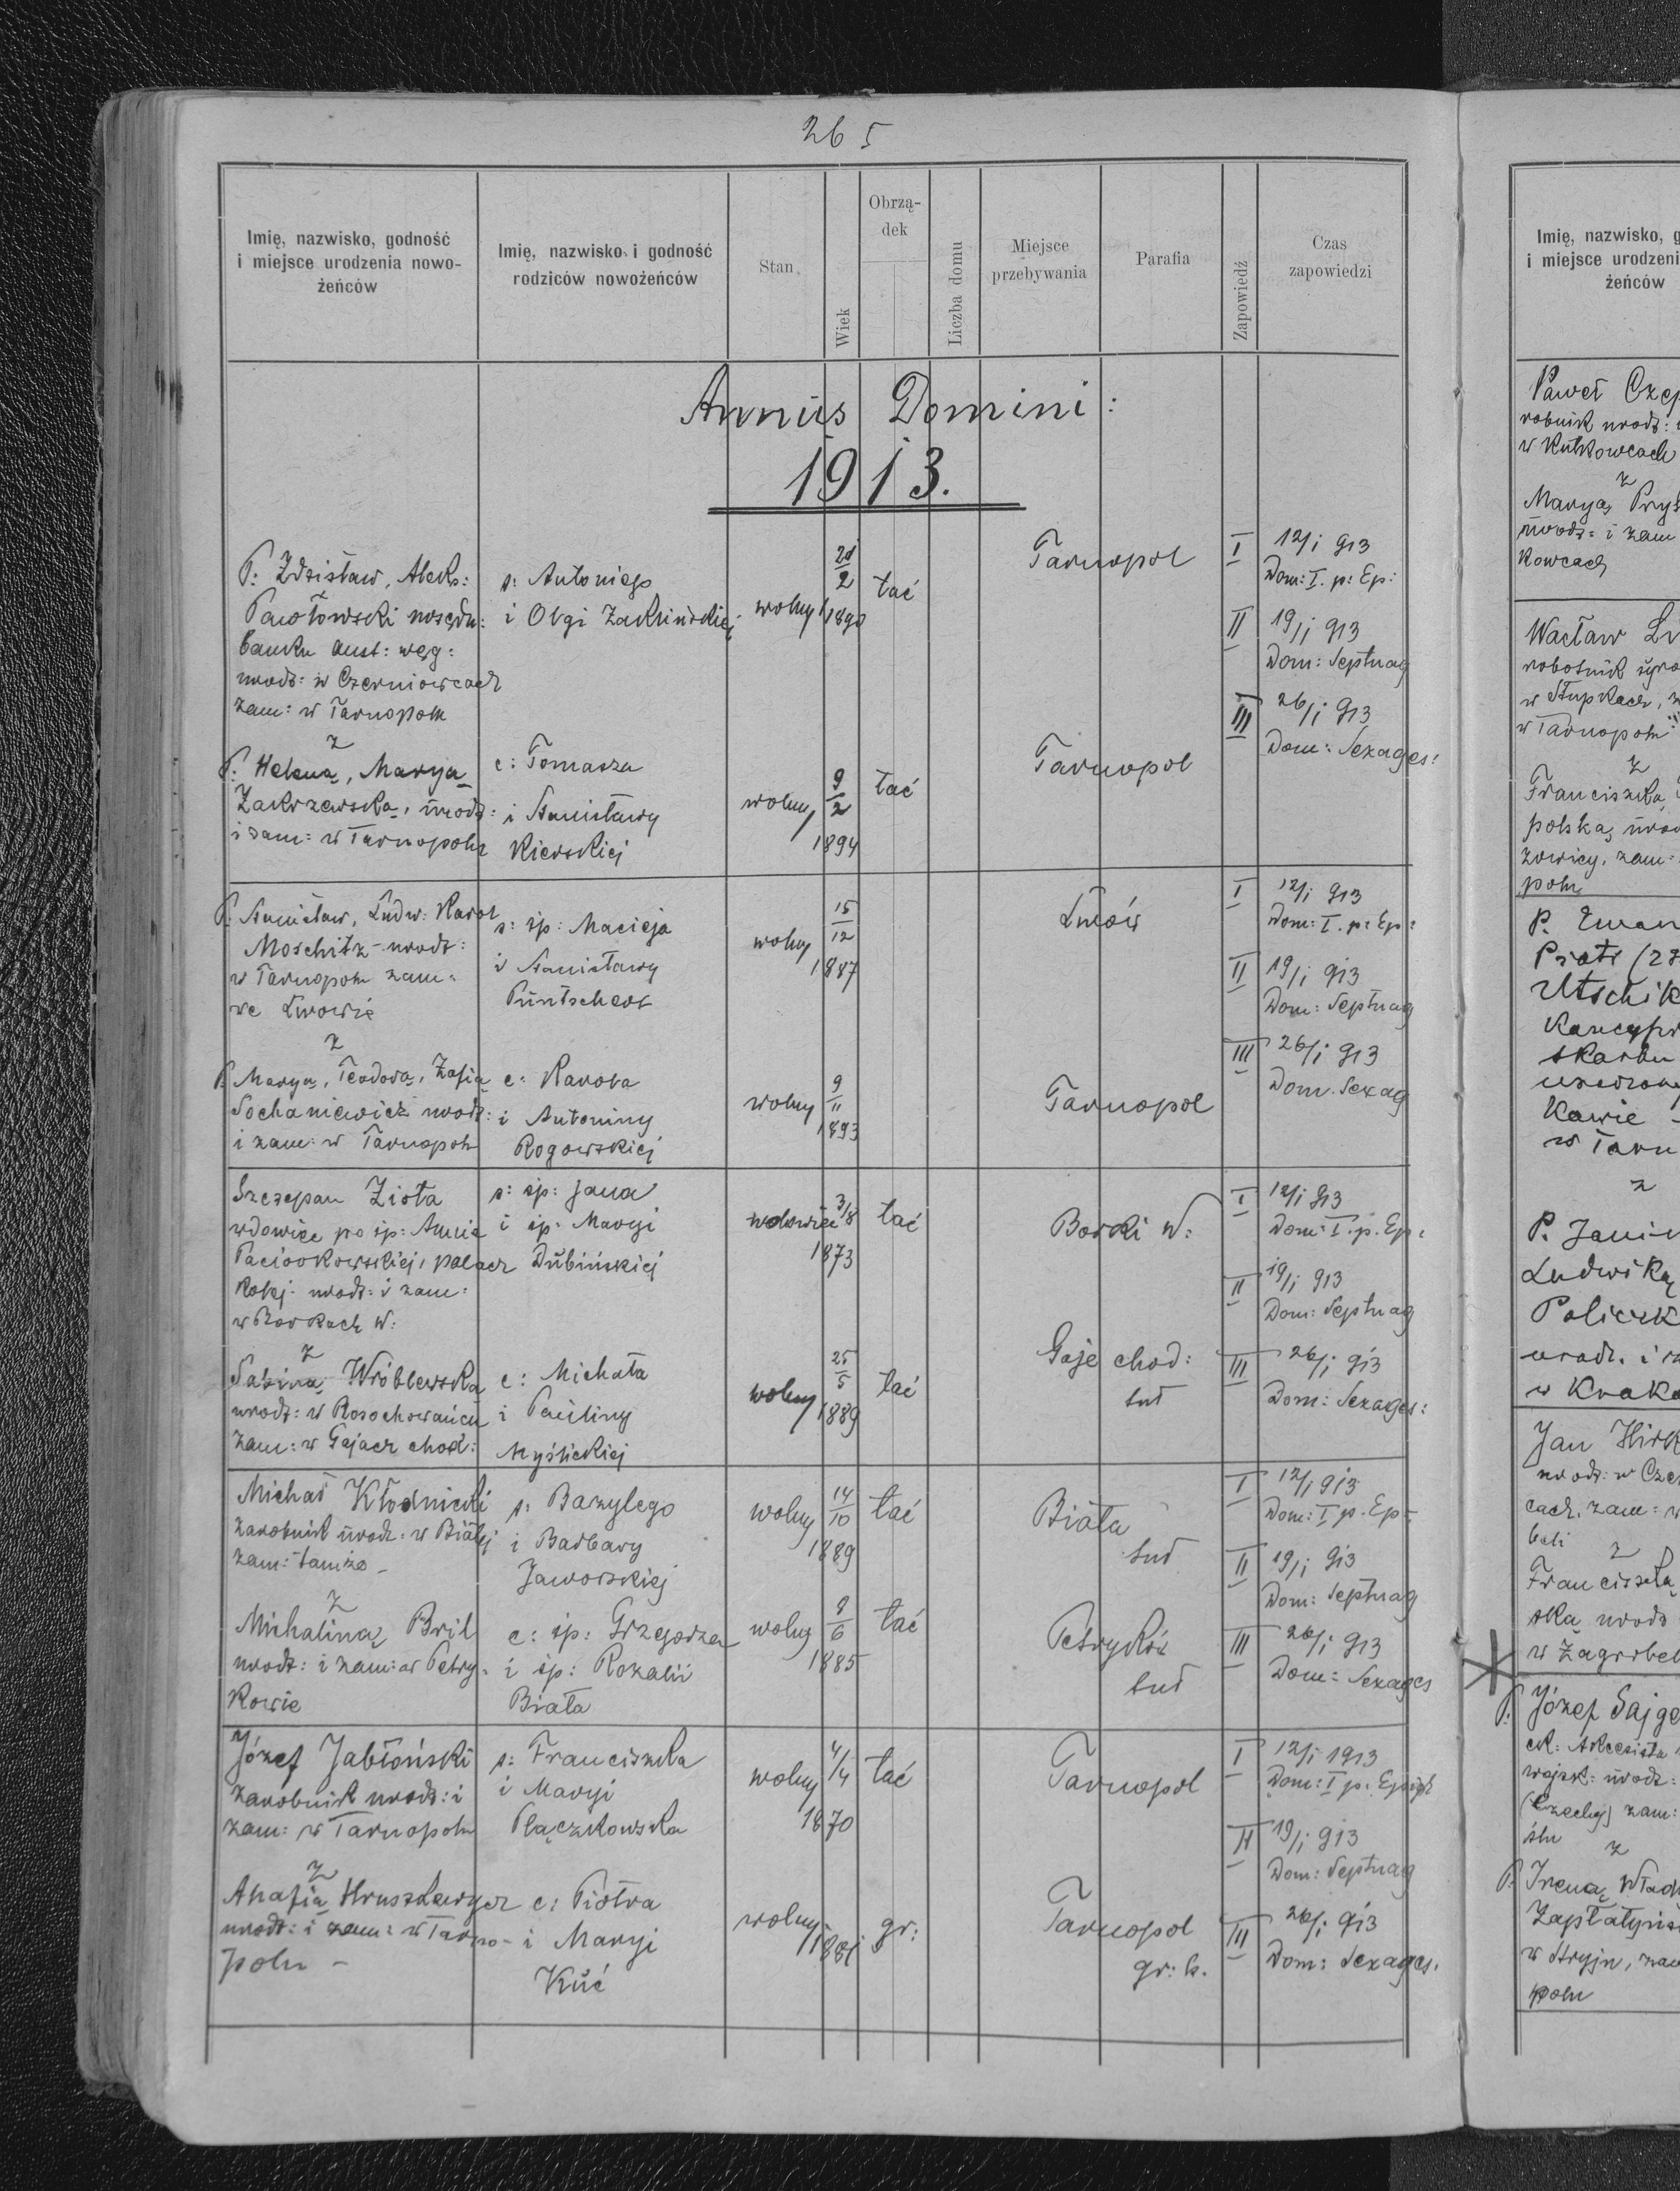 265
Imię, nazwisko, godność i miejsce urodzenia nowo-żeńców
Imię, nazwisko i godność rodziców nowożeńców
Stan
Wiek
Obrzą-dek
Liczba domu
Miejsce przebywania
Parafia
Zapowiedź
Czas zapowiedzi
Annus Domini:
1913.
P: Zdzisław, Aleks:
Pawłowski
banku aust: węg:
urodz: w Czerniowcach
zam: w Tarnopolu
s: Antoniego
i Olgi
wolny
2
1890
łać
Tarnopol
I 12/I 913
Dom: I. p: Ep:
II 19/I 913
Dom: Septuag
III 26/I 913
Dom: Sexages:
z
P: Heleną, Maryą
Zakrzewską, urodz:
i zam: w Tarnopolu
c: Tomasza
i Stanisławy
Kierskiej
wolny
9
2
1894
łać
Tarnopol
P. Stanisław, Ludw: Karol
Moschitz urodz:
w Tarnopolu zam:
we Lwowie
s: śp: Macieja
i Stanisławy
Püntschert
wolny
15
12
1887
Lwów
I 12/I 913
Dom: I. p: Ep:
II 19/I 913
Dom: Septuag
III 26/I 913
Dom. Sexag
z
P. Maryą, Teodorą, Zofią
Sochaniewicz urodz:
i zam: w Tarnopolu
c: Karola
i Antoniny
Rogowskiej
wolny
9
11
1893
Tarnopol
Szczepan Zioła
wdowiec po śp: Annie
Paciorkowskiej, palacz
kolej. urodz: i zam:
w Borkach W:
s: śp: Jana
i śp: Maryi
Dubińskiej
wdowiec
3/8
1873
łać
Borki W:
I 12/I 913
Dom: I. p. Ep:
II 19/I 913
Dom: Septuag
III 26/I 913
Dom: Sexages:
z
Sabiną Wróblewską
urodz: w Rosochowańcu
zam: w Gajach chod:
c: Michała
i Pauliny
Myślickiej
wolny
25
5
1889
łać
Gaje chod:
tut
Michał Kłodnicki
zarobnik urodz: w Białej
zam: tamże -
s: Bazylego
i Barbary
Jaworskiej
wolny
14
10
1889
łać
Biała
tut
I 12/I 913
Dom: I p. Ep:
II 19/I 913
Dom: Septuag
III 26/I 913
Dom: Sexages
z
Michaliną Bril
urodz: i zam: w Petry-
kowie
c: śp: Grzegorza
i śp: Rozalii
Biała
wolny
8
6
1885
łać
Petryków
tut
Józef Jabłoński
zarobnik urodz: i
zam: w Tarnopolu
s: Franciszka
i Maryi
Płaczkowska
wolny
4/4
1870
łać
Tarnopol
I 12/I 1913
Dom: I p: Epiph
II 19/I 913
Dom: Septuag
III 26/I 913
Dom: Sexages.
z
urodz: i zam: w Tarno-
polu -
c: Piotra
i Maryi
Kuć
wolny
1881
gr:
Tarnopol
gr: k.
Imię, nazwisko, g
i miejsce urodzeni
żeńców
Paweł Czep
robnik urodz:
w Kutkowcach
z
Maryą Pryś
urodz: i zam
kowcach
Wacław
robotnik
w Stupkach,
w Tarnopolu
z
Franciszką
polską, uro
zowicy, zam:
polu
P. Eman
Piotr (27
Utschik
skarbu
kowie
w Tarn
z
P. Jani
Ludwiką
Policzk
urodz. i
w Krako
Jan Hirk
urodz: w Cze
cach, zam:
z
Franciszką
ską urodz
w Zagrobel
P. Józef Sajge
ck: Akcesista
wojsk: urodz:
(Czechy) zam:
z
P. Ireną Wład
w Stryju, zam
polu